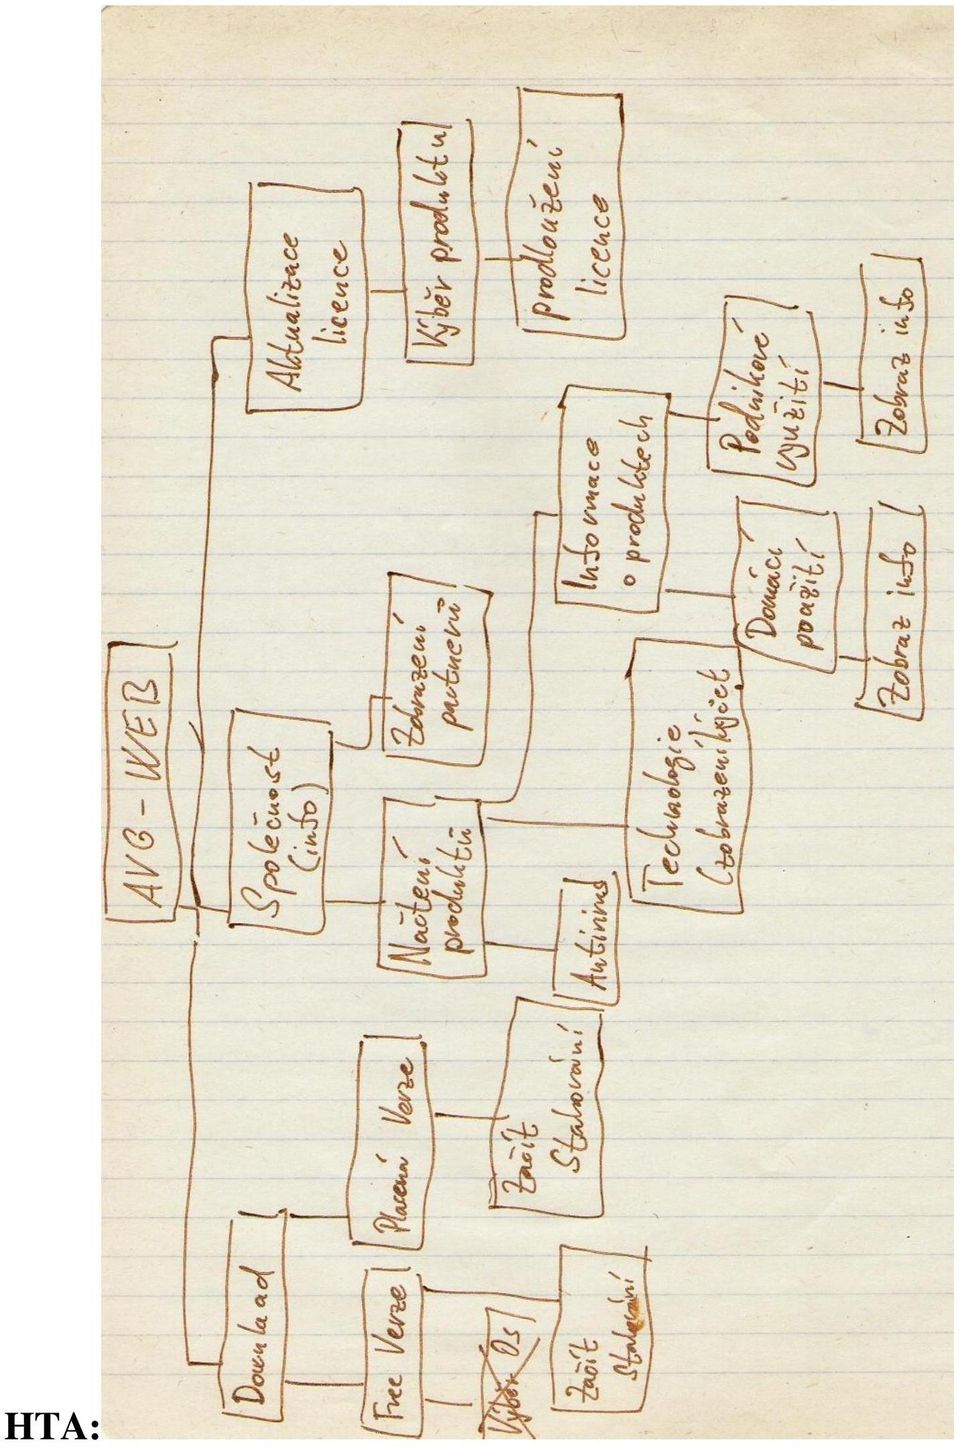 HTA:
AVG - WEB
Download
Free Verze
Výběr Os
Začít
Stahování
Placená Verze
Začít
Stahování
Společnost
(info)
Načtení
produktů
Antivirus
Technologie
(zobrazení výčet
Informace
o produktech
Domácí
použití
Zobraz info
Podnikové
využití
Zobraz info
Zobrazení
partnerů
Aktualizace
licence
Výběr produktu
prodloužení
licence